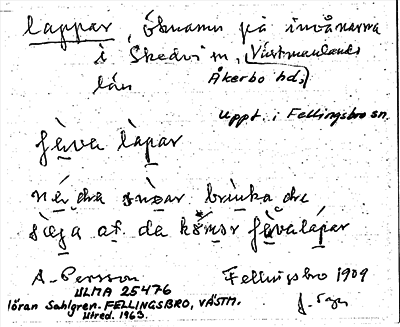 lappar, öbnamn på invånarna
i Skedvi sn, Västmanlands
län Åkerbo hd.
Uppt. i Fellingsbro sn.
jæva làpar
når dra
sæga at da kömər jævalápar
A. Persson Fellingsbro 1909
ULMA 25476
Jöran Sahlgren. FELLINGSBRO, VÄSTM.
Utred. 1963.